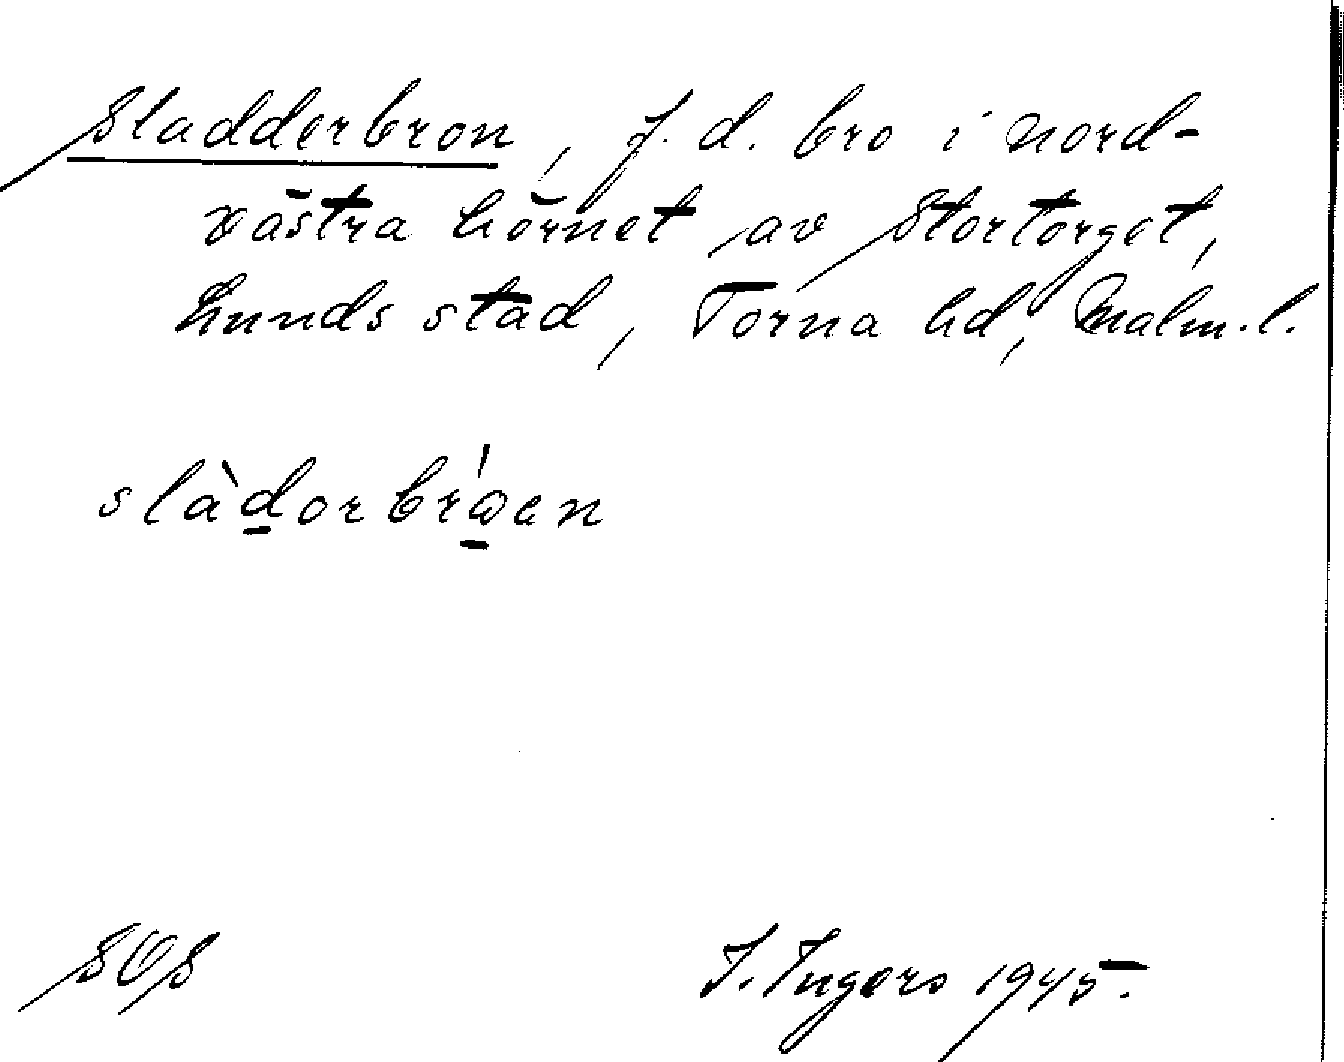 Sladderbron, f.d. bro i nord-
västra hörnet av Stortorget,
Lunds stad, Torna hd, Malm.l.
SOS I. Ingers 1945.